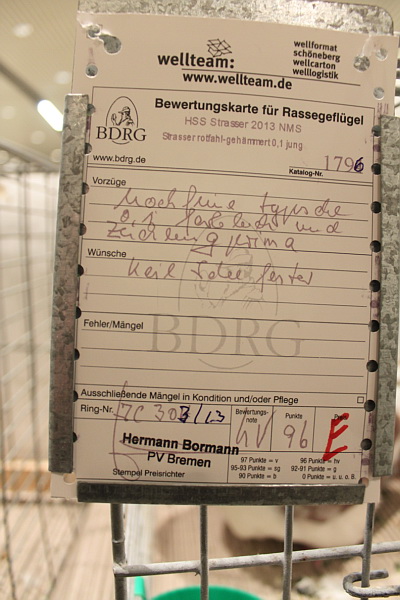 wellteam:
www.wellteam.de
wellformat
schöneberg
wellcarton
welllogistik
BDRG
www.bdrg.de
Bewertungskarte für Rassegeflügel
HSS Strasser 2013 NMS
Strasser rotfahl-gehämmert 0,1 jung
Katalog-Nr. 1796
Vorzüge
Hochfeine typische
0,1 Farblich und
Zeichnung prima
Wünsche
Keil
Fehler/Mängel
BDRG
Ausschließende Mängel in Kondition und/oder Pflege
Ring-Nr. 303/13
Bewertungs-
note
hV
Punkte
96
Preis
E
Hermann Bormann
PV Bremen
Stempel Preisrichter
97 Punkte = v 96 Punkte = hv
95-93 Punkte = sg 92-91 Punkte = g
90 Punkte = b 0 Punkte = u. u. o. B.